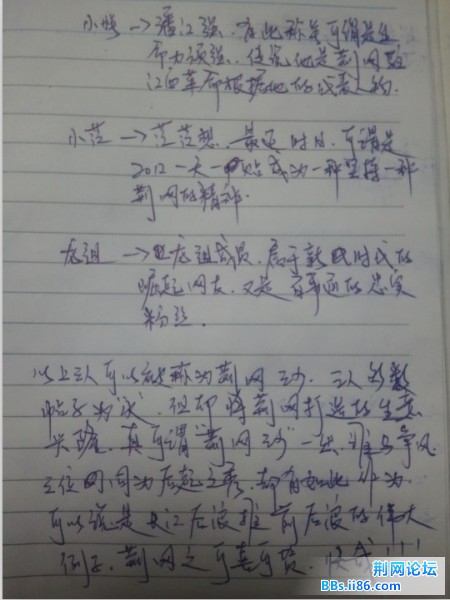 小强→潘江强,有此称号可谓是生
命力顽强。传说他是荆网驻
江西革命根据地的代表之一
小范→范范想,最近时日,可谓是
2012一天一贴成为一种坚持一种
荆网的精神.
龙组→龙组成员,属于新时代的
崛起网友,又是百事通的忠实
粉丝.
以上三人可以称为荆网三少.三人
帖子为 但却将荆网打造的生意
兴隆.真可谓"荆网三少"一出,谁与争风
三位同为后起之秀,却有如此作为
可以说是长江后浪推前后浪的伟大
例子.荆网之可真可贺.
荆网论坛
BBs.ii86.com